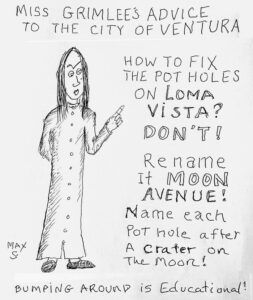 MISS GRIMLEE'S ADVICE
TO THE CITY OF VENTURA
HOW TO FIX
THE POT HOLES
ON LOMA
VISTA?
DON'T!
Rename
It MOON
AVENUE!
Name each
Pot hole after
A Crater on
The Moon!
MAX
S
BUMPING AROUND is Educational!